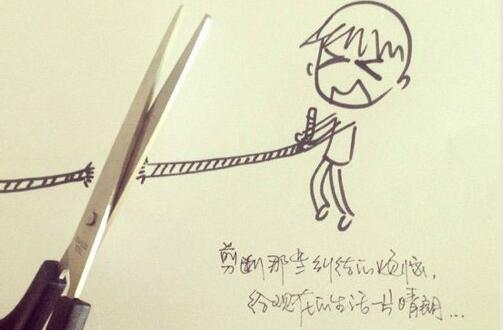 剪断那些纠结的烦恼，
给现在的生活一片晴朗...